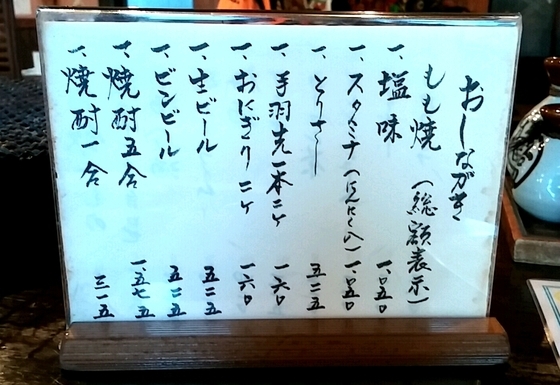 おしながき
もも焼 (総額表示)
一、塩味 一、〇五〇
一、スタミナ (にんにく入) 一、〇五〇
一、とりさし 五二五
一、手羽先一本二ケ 一六〇
一、おにぎり二ケ 一六〇
一、生ビール 五二五
一、ビンビール 五二五
一、焼酎五合 一、五七五
一、焼酎一合 三一五